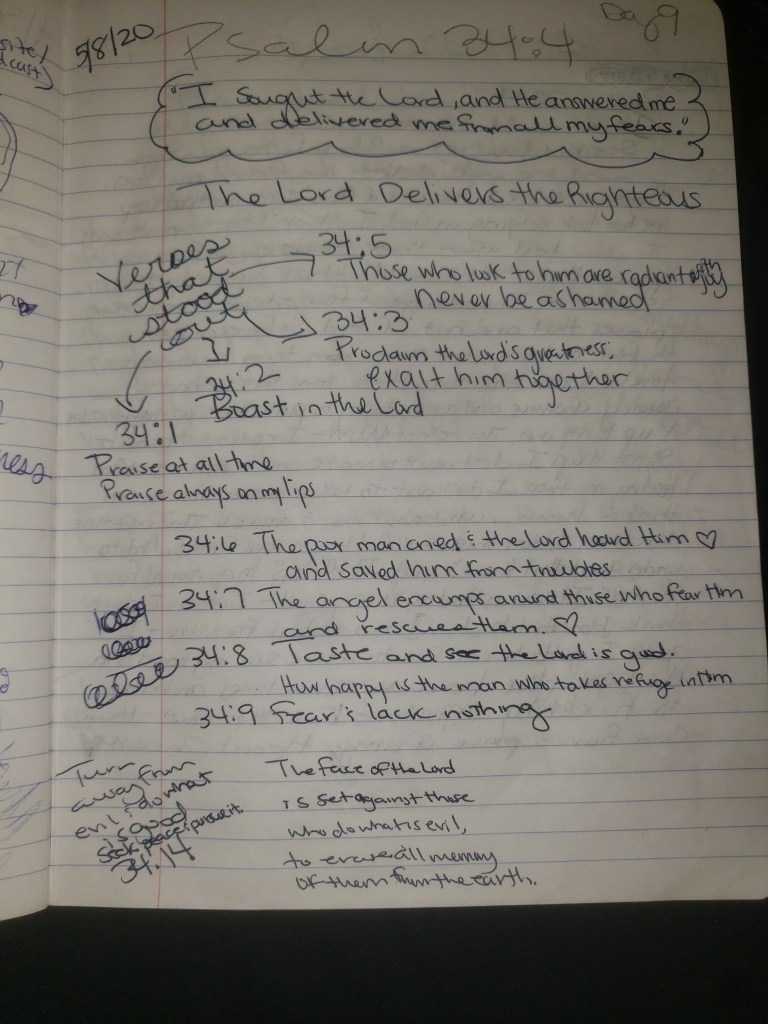 Day 9
5/8/20
Psalm 34:4
"I sought the Lord, and He answered me
and delivered me from all my fears."
The Lord Delivers the Righteous
Verses
that
stood
out
34:5
Those who look to him are radiant with joy
never be ashamed
34:3
Proclaim the Lord's greatness;
exalt him together
34:2
Boast in the Lord
34:1
Praise at all time
Praise always on my lips
34:6 The poor man cried & the Lord heard Him ♡
and saved him from troubles
34:7 The angel encamps around those who fear Him
and rescues them. ♡
34:8 Taste and see the Lord is good.
How happy is the man who takes refuge in Him
34:9 Fear & lack nothing
Turn
away from
evil & do what
is good
seek peace & pursue it
34:14
The face of the Lord
is set against those
who do what is evil,
to erase all memory
of them from the earth.